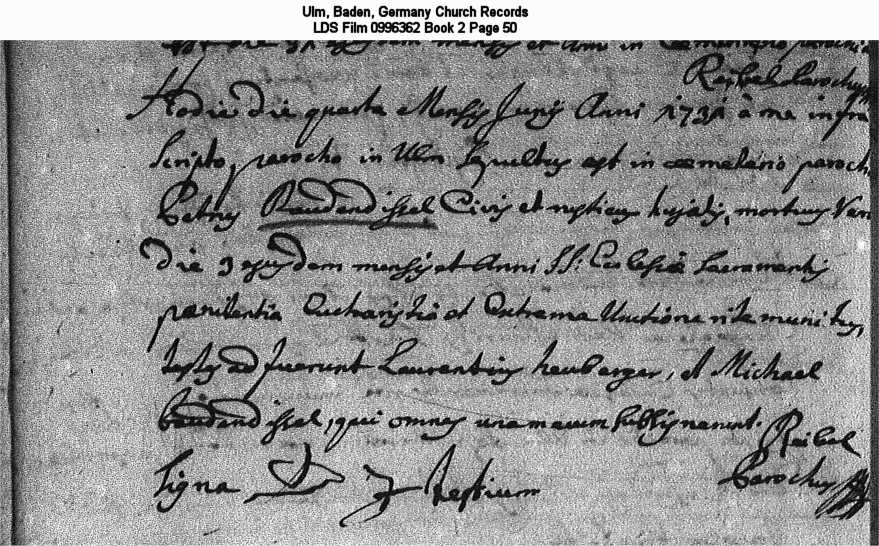 Ulm, Baden, Germany Church Records
LDS Film 0996362 Book 2 Page 50
Reibel Parochus
Hodie die quarta Mensis Junij Anni 1731 à me infra
scripto parocho in Ulm sepultus est in cæmeterio paroch.
Petrus Baudendissel Civis et hujatis, mortuus
die 3 ejusdem mensis et Anni SS: Ecclesiæ sacramentis
pœnitentia Eucharistia et Extrema Unctione rite munitus,
testes ad fuerunt Laurentius heuberger, et Michael
baudendissel, qui omnes una mecum subsignarunt.
Reibel
Parochus
signa testium